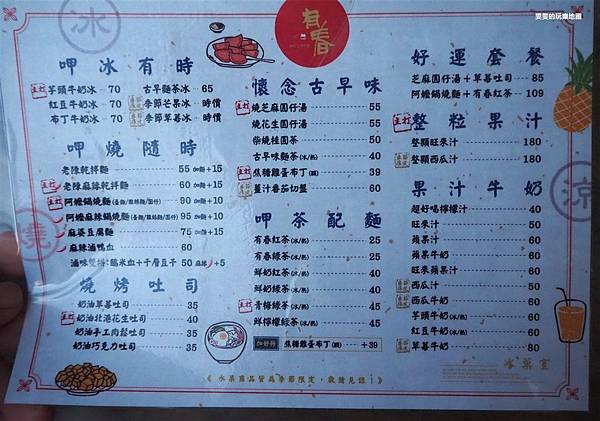 雯雯的玩樂地圖
冰
有春
呷冰有時
主打 芋頭牛奶冰 - 70
紅豆牛奶冰 - 70
布丁牛奶冰 - 70
古早麵茶冰 - 65
季節芒果冰 - 時價
季節草莓冰 - 時價
呷燒隨時
老陳乾拌麵 55 加麵+15
主打 老陳麻辣乾拌麵 60 加麵+15
主打 阿嬤鍋燒麵(意麵/雞絲麵/冬粉) 90 加麵+10
阿嬤麻辣鍋燒麵(意麵/雞絲麵/冬粉) 95 加麵+10
麻婆豆腐麵 75 加麵+15
麻辣滷鴨血 60
滷味雙拼:糯米血+千層豆干 50 麻辣+5
燒
燒烤吐司
奶油草莓吐司 35
主打 奶油北港花生吐司 40
奶油手工肉鬆吐司 35
奶油巧克力吐司 35
懷念古早味
主打 燒芝麻圓仔湯 55
燒花生圓仔湯 55
柴燒桂圓茶 50
古早味麵茶(冰/熱) 40
主打 焦糖雞蛋布丁(顆) 39
薑汁番茄切盤 60
呷茶配麵
有春紅茶(冰/熱) 25
有春綠茶(冰/熱) 25
鮮奶紅茶(冰/熱) 40
鮮奶綠茶(冰/熱) 40
主打 青梅綠茶(冰/熱) 45
鮮檸檬綠茶(冰/熱) 45
加好料 焦糖雞蛋布丁(顆) +39
好運套餐
芝麻圓仔湯+草莓吐司 85
阿嬤鍋燒麵+有春紅茶 109
整粒果汁
主打 整顆旺來汁 180
整顆西瓜汁 180
涼
果汁牛奶
超好喝檸檬汁 40
旺來汁 50
蘋果汁 60
蘋果牛奶 60
旺來蘋果汁 60
西瓜汁 50
西瓜牛奶 60
芋頭牛奶(冰/熱) 60
紅豆牛奶(冰/熱) 60
草莓牛奶 80
冰菓室
《水果商品皆為季節限定，敬請見諒！》